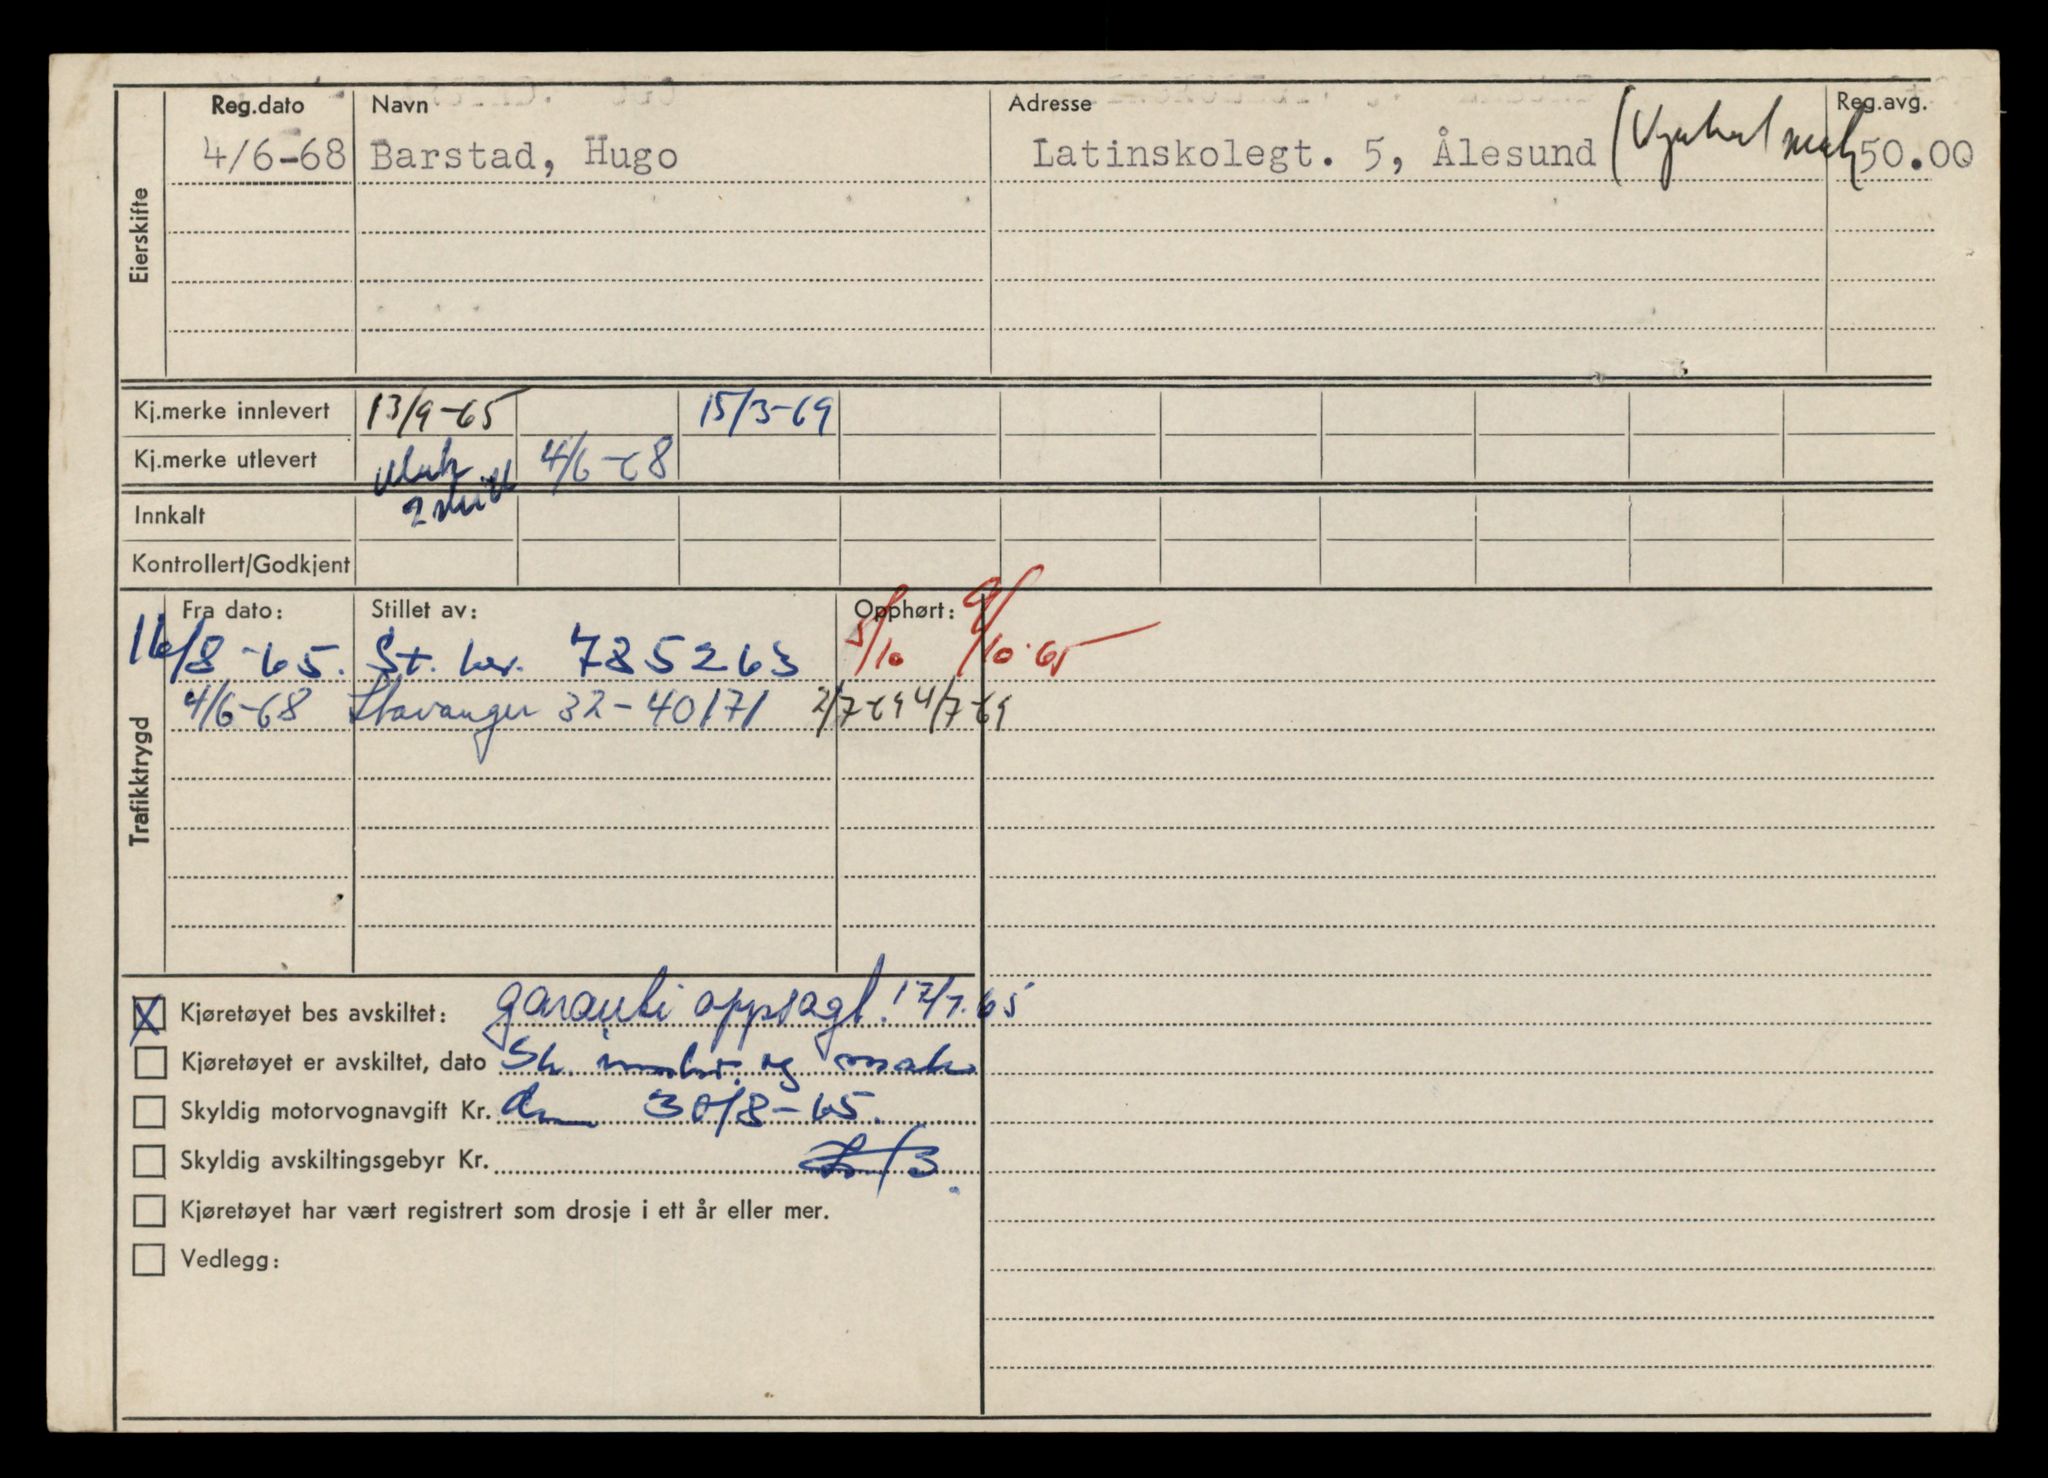 Reg.dato Navn Adresse Reg.avg.
4/6-68 Barstad, Hugo Latinskolegt. 5, Ålesund 50.00
Eierskifte
Kj.merke innlevert 13/9-65 15/3-69
Kj.merke utlevert 4/6-68
Innkalt
Kontrollert/Godkjent
Trafikktrygd
Fra dato: Stillet av: Opphørt:
16/8-65. St. 785263 5/10 9/10-65
4/6-68 Stavanger 32-40171 2/7-69 4/7-69
X Kjøretøyet bes avskiltet: garanti oppsagt! 17/7.65
Kjøretøyet er avskiltet, dato og
Skyldig motorvognavgift Kr. 30/8-65.
Skyldig avskiltingsgebyr Kr.
Kjøretøyet har vært registrert som drosje i ett år eller mer.
Vedlegg: